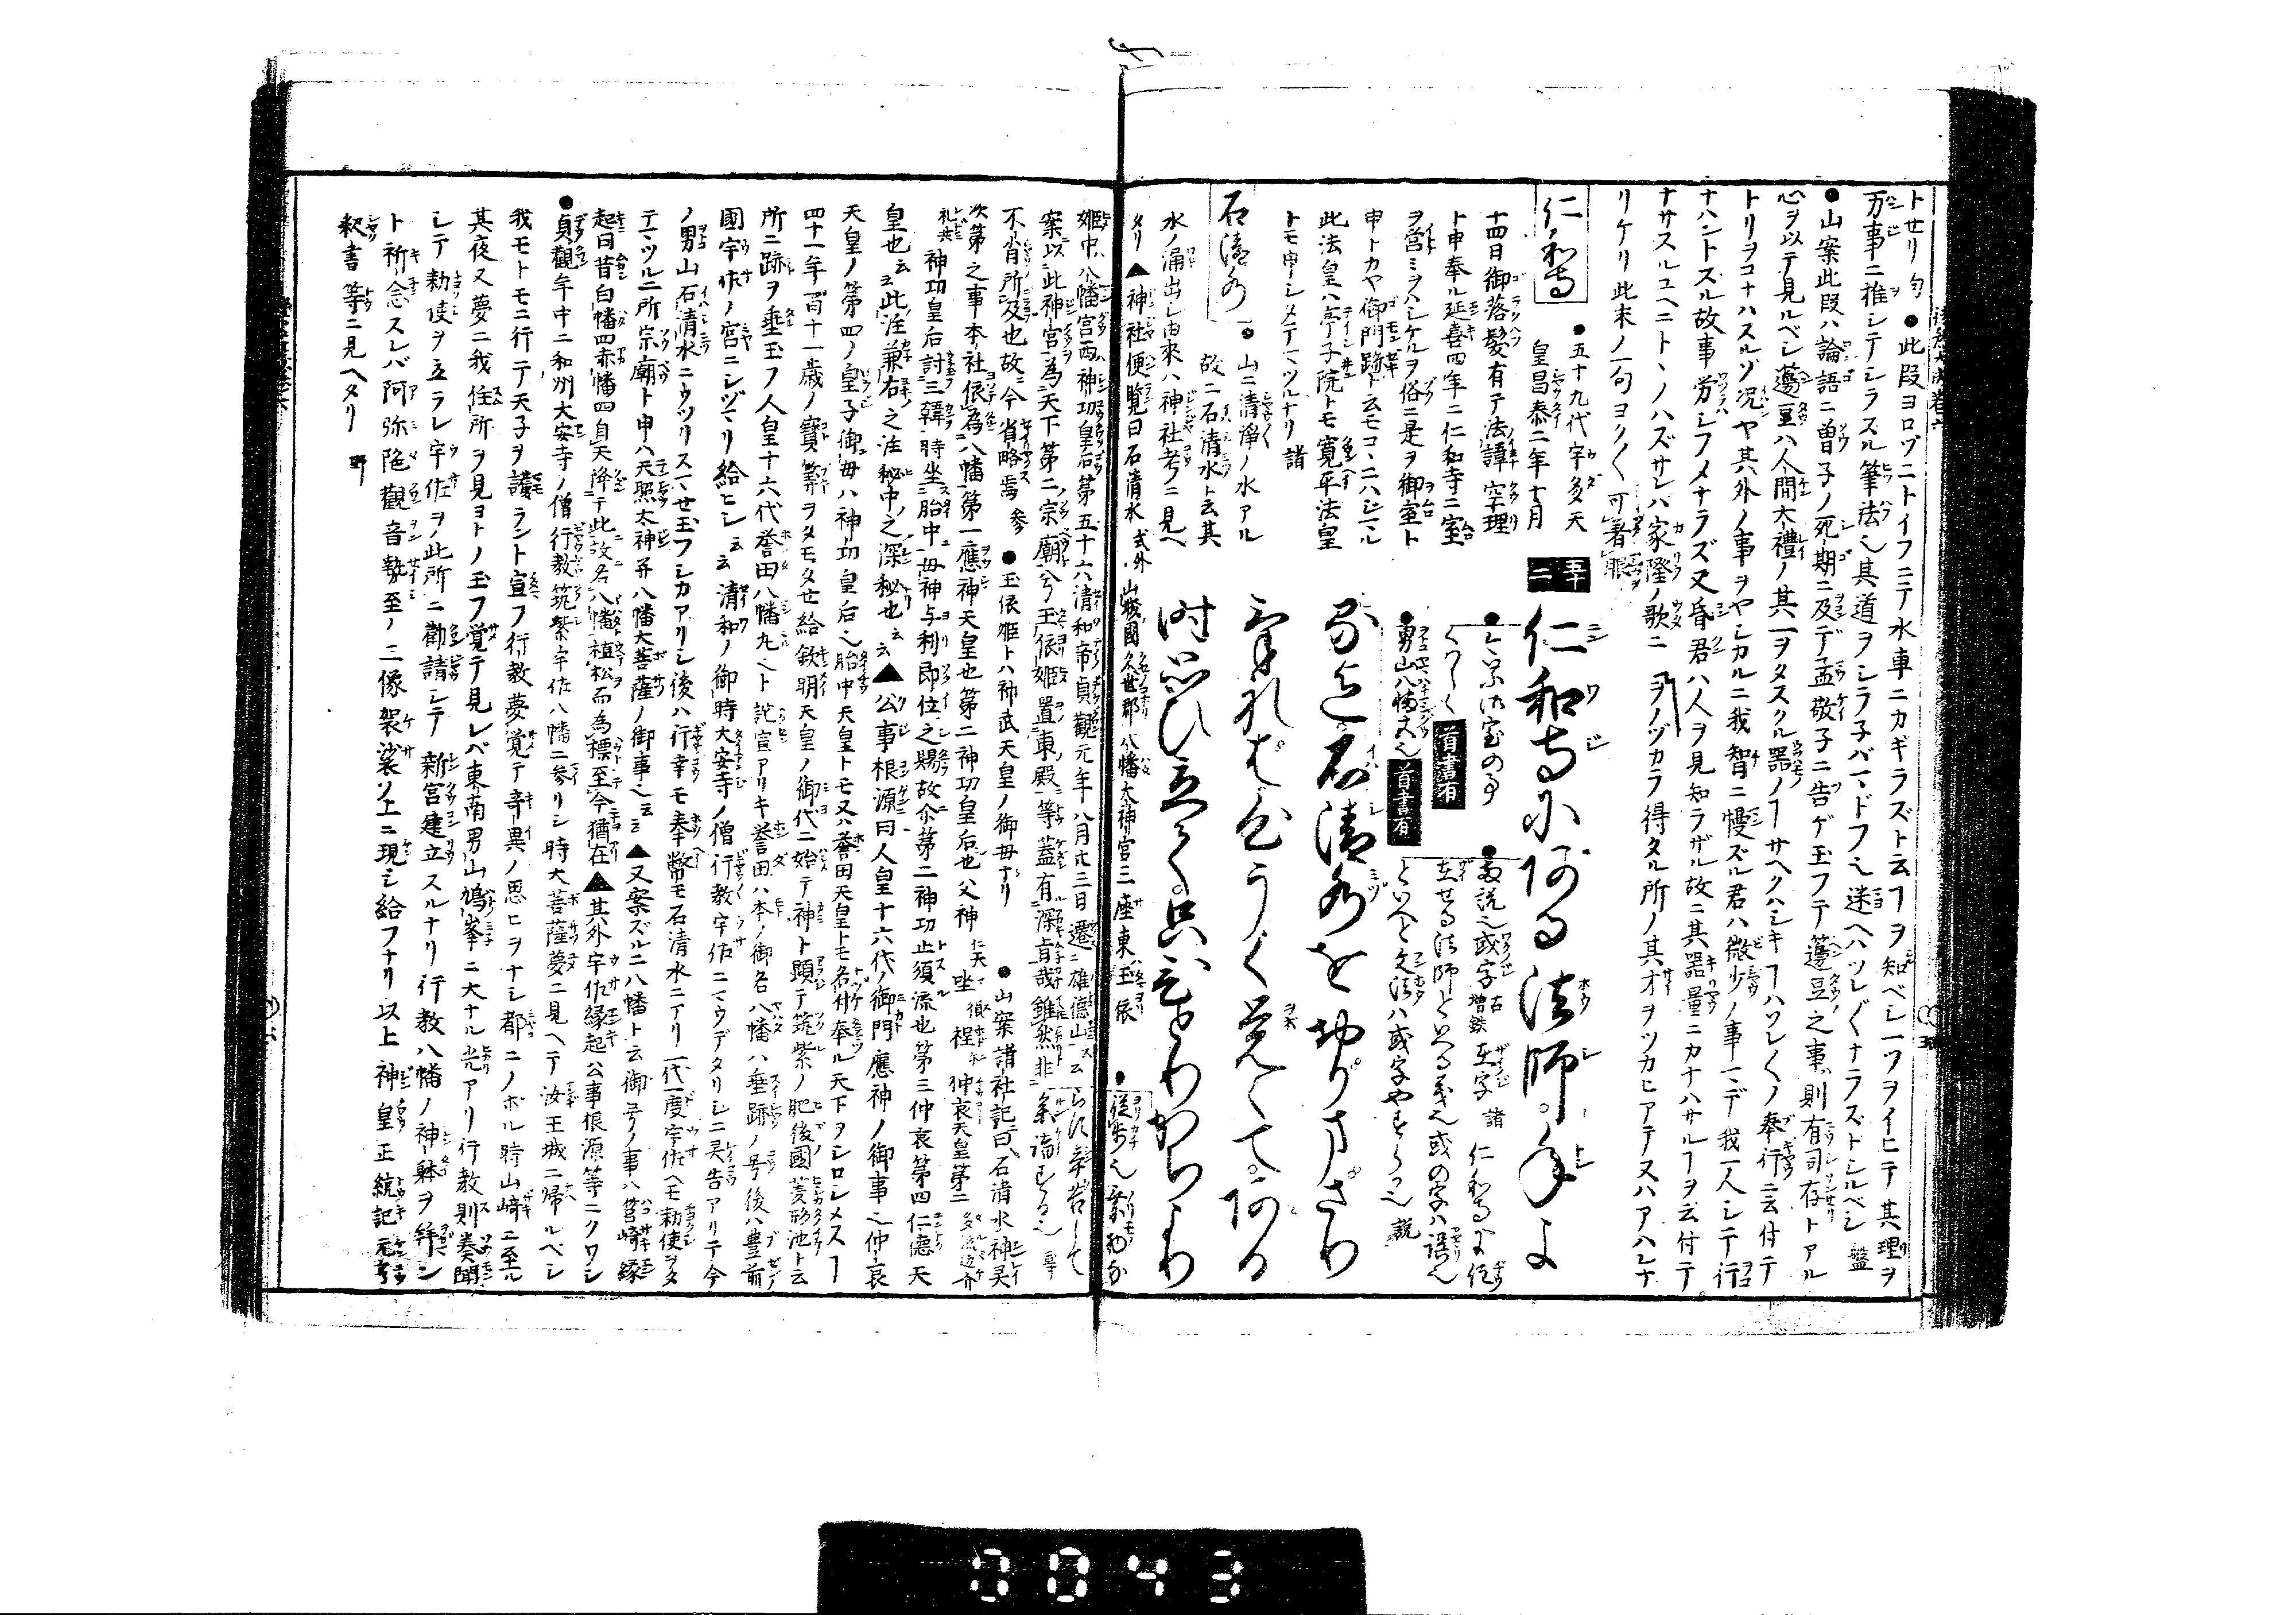 トセリ句●此段ヨロヅニトイフニテ水車ニカギラズト云フヿヲ知ベシ一ツヲイヒテ其理ヲ
万事ニ推シテシラスル筆法也其道ヲシラ子バマドフ也迷ヘハツレ〲ナラズトシルベシ 盤
●山案此段ハ論語ニ曽子ノ死期ニ及デ孟敬子ニ告ゲ玉フテ籩豆之事ハ則有司存トアル
心ヲ以テ見ルベシ籩豆ハ人間大禮ノ其一ヲタスクル器ノヿサヘクハシキヿハソレ〱ノ奉行ニ云付テ
トリヲコナハスルゾ況ヤ其外ノ事ヲヤシカルニ我智ニ慢ズル君ハ微少ノ事マデ我一人シテ行
ナハントズル故事労シフメナラズ又昏君ハ人ヲ見知ラザル故ニ其器量ニカナハサルヿヲ云付テ
ナサスルユヘニトヽノハズサレバ家隆ノ歌ニ ヲノヅカラ得タル所ノ其才ヲツカヒアテヌハアハレナ
リケリ此末ノ一句ヨク〱可著眼
仁和寺
●五十九代宇多天
皇昌泰二年十月
十四日御落髪有テ法諱空理
ト申奉ル延喜四年ニ仁和寺ニ室
ヲ営ミヲハシケルヲ俗ニ是ヲ御室ト
申トカヤ御門跡ト云モコヽニハジマル
此法皇ハ亭子院トモ寛平法皇
トモ申シメテマツルナリ 諸
石清水
●山ニ清浄ノ水アル
故ニ石清水ト云其
水ノ涌出シ由來ハ神社考ニ見ヘ
タリ▲神社便覽曰石清水 式外 山城國久世郡八幡大神宮三座東玉依
五十二
仁和寺に阿る法師。年よ
る迄石清水を拝まざり
ければ。心うく覚えて。阿る
時思ひ立て只ひとりかちより
男山八幡宮也 首書有
姫中ハ八幡宮西神功皇后第五十六清和帝貞觀元年八月廿三日遷雄徳山云
案以此神宮為天下第二宗廟兮玉依姫置東殿等蓋有深旨哉雖然非
不肖所及也故ニ今省略焉 参 ●玉依姫トハ神武天皇ノ御母ナリ ●山案諸社記曰石清水神灵
次第之事本社依為八幡第一應神天皇也第二神功皇后也父神
神功皇后討三韓時坐胎中母神与利即位之賜故尒第二神功止須流也第三仲哀第四仁德天
皇也云云此注兼右之注秘中之深秘也云云▲公事根源曰人皇十六代ノ御門應神ノ御事也仲哀
天皇ノ第四ノ皇子御母ハ神功皇后也胎中天皇トモ又ハ誉田天皇トモ名付奉ル天下ヲシロシメスヿ
四十一年百十一歳ノ寶筭ヲタモタせ給欽明天皇ノ御代ニ始テ神ト顕テ筑紫ノ肥後國菱形池ト云
所ニ跡ヲ垂玉フ人皇十六代誉田八幡丸ト託宣アリキ誉田ハ本ノ御名八幡ハ垂跡ノ号後ハ豊前
國宇佐ノ宮ニシヅマリ給ヒシ云云清和ノ御時大安寺ノ僧行教宇佐ニマウデタリシニ灵告アリテ今
ノ男山石清水ニウツリスマせ玉フシカアリシ後ハ行幸モ奉幣モ石清水ニアリ一代一度宇佐ヘモ勅使ヲタ
テマツル二所宗廟ト申ハ天照太神并八幡大菩薩ノ御事也云云▲又案ズルニ八幡ト云御号ノ事ハ筥﨑縁
起曰昔白幡四赤幡四自天降テ此故名八幡植松而為標至今猶在▲其外宇佐縁起公事根源等ニクワシ
●貞觀年中ニ和州大安寺ノ僧行教筑紫宇佐八幡ニ参リシ時大菩薩夢ニ見ヘテ汝王城ニ帰ルベシ
我モトモニ行テ天子ヲ護ラント宣フ行教夢覚テ竒異ノ思ヒヲナシ都ニノボル時山﨑ニ至ル
其夜又夢ニ我住所ヲ見ヨトノ玉フ覚テ見レバ東南男山鳩峯ニ大ナル光アリ行教則奏聞
シテ勅使ヲ立ラレ宇佐ヲ此所ニ勸請シテ新宮建立スルナリ行教八幡ノ神躰ヲ拜シ
ト祈念スレバ阿弥陀觀音勢至ノ三像袈裟ノ上ニ現シ給フナリ以上神皇正統記元亨
釈書等ニ見ヘタリ 野
3043